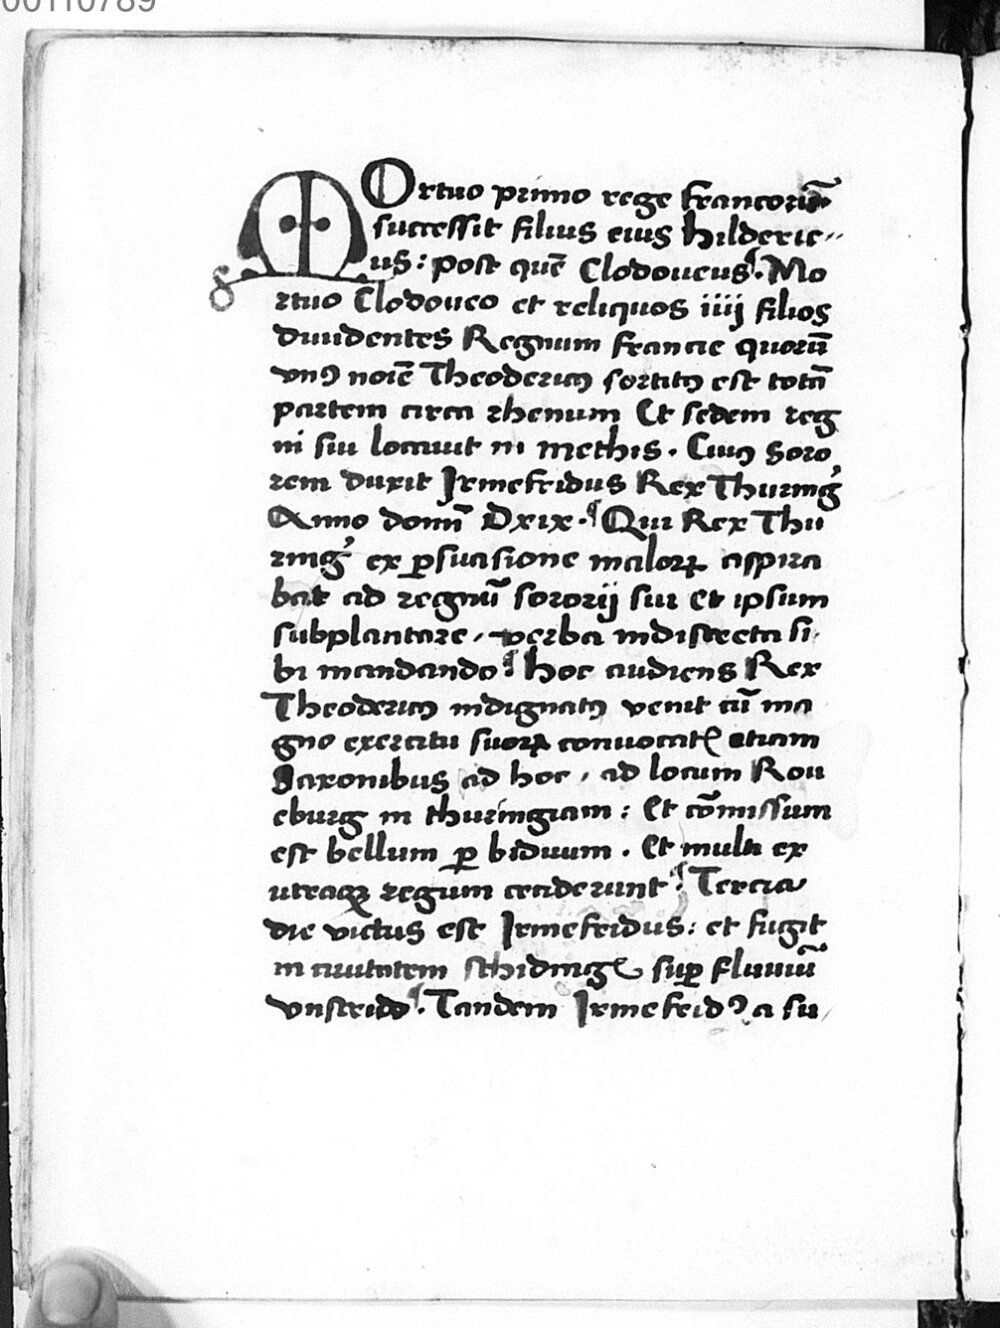 00110789
MOrtuo primo rege francorū
successit filius eius hilderic-
us: post quē Clodoueus. Mo
rtuo Clodoueo et reliquos iiij filios
diuidentes Regnum francie quorū
vnꝰ noīe Theodericꝰ sortitꝰ est totā
partem circa rhenum Et sedem reg
ni sui locauit in methis. Cuiꝰ soro
rem duxit Irmefridus Rex Thuring'
Anno domī Dxix. Qui Rex Thu
ring' ex ꝑsuasione malorꝝ aspira
bat ad regnū sororij sui Et ipsum
subplantare, verba indiscreta si
bi mandando: hoc audiens Rex
Theodericꝰ indignatꝰ venit cū ma
gno exercitu suorꝝ conuocatꝭ etiam
Saxonibus ad hoc, ad locum Ron
eburg in thuringiam: Et cōmissum
est bellum ꝑ biduum. Et multi ex
utraqꝫ regum ceciderunt: Tercia
die victus est Irmefridus: et fugit
in ciuitatem schidingꝭ suꝑ fluuiū
vnstrido. Tandem Irmefridꝰ a su